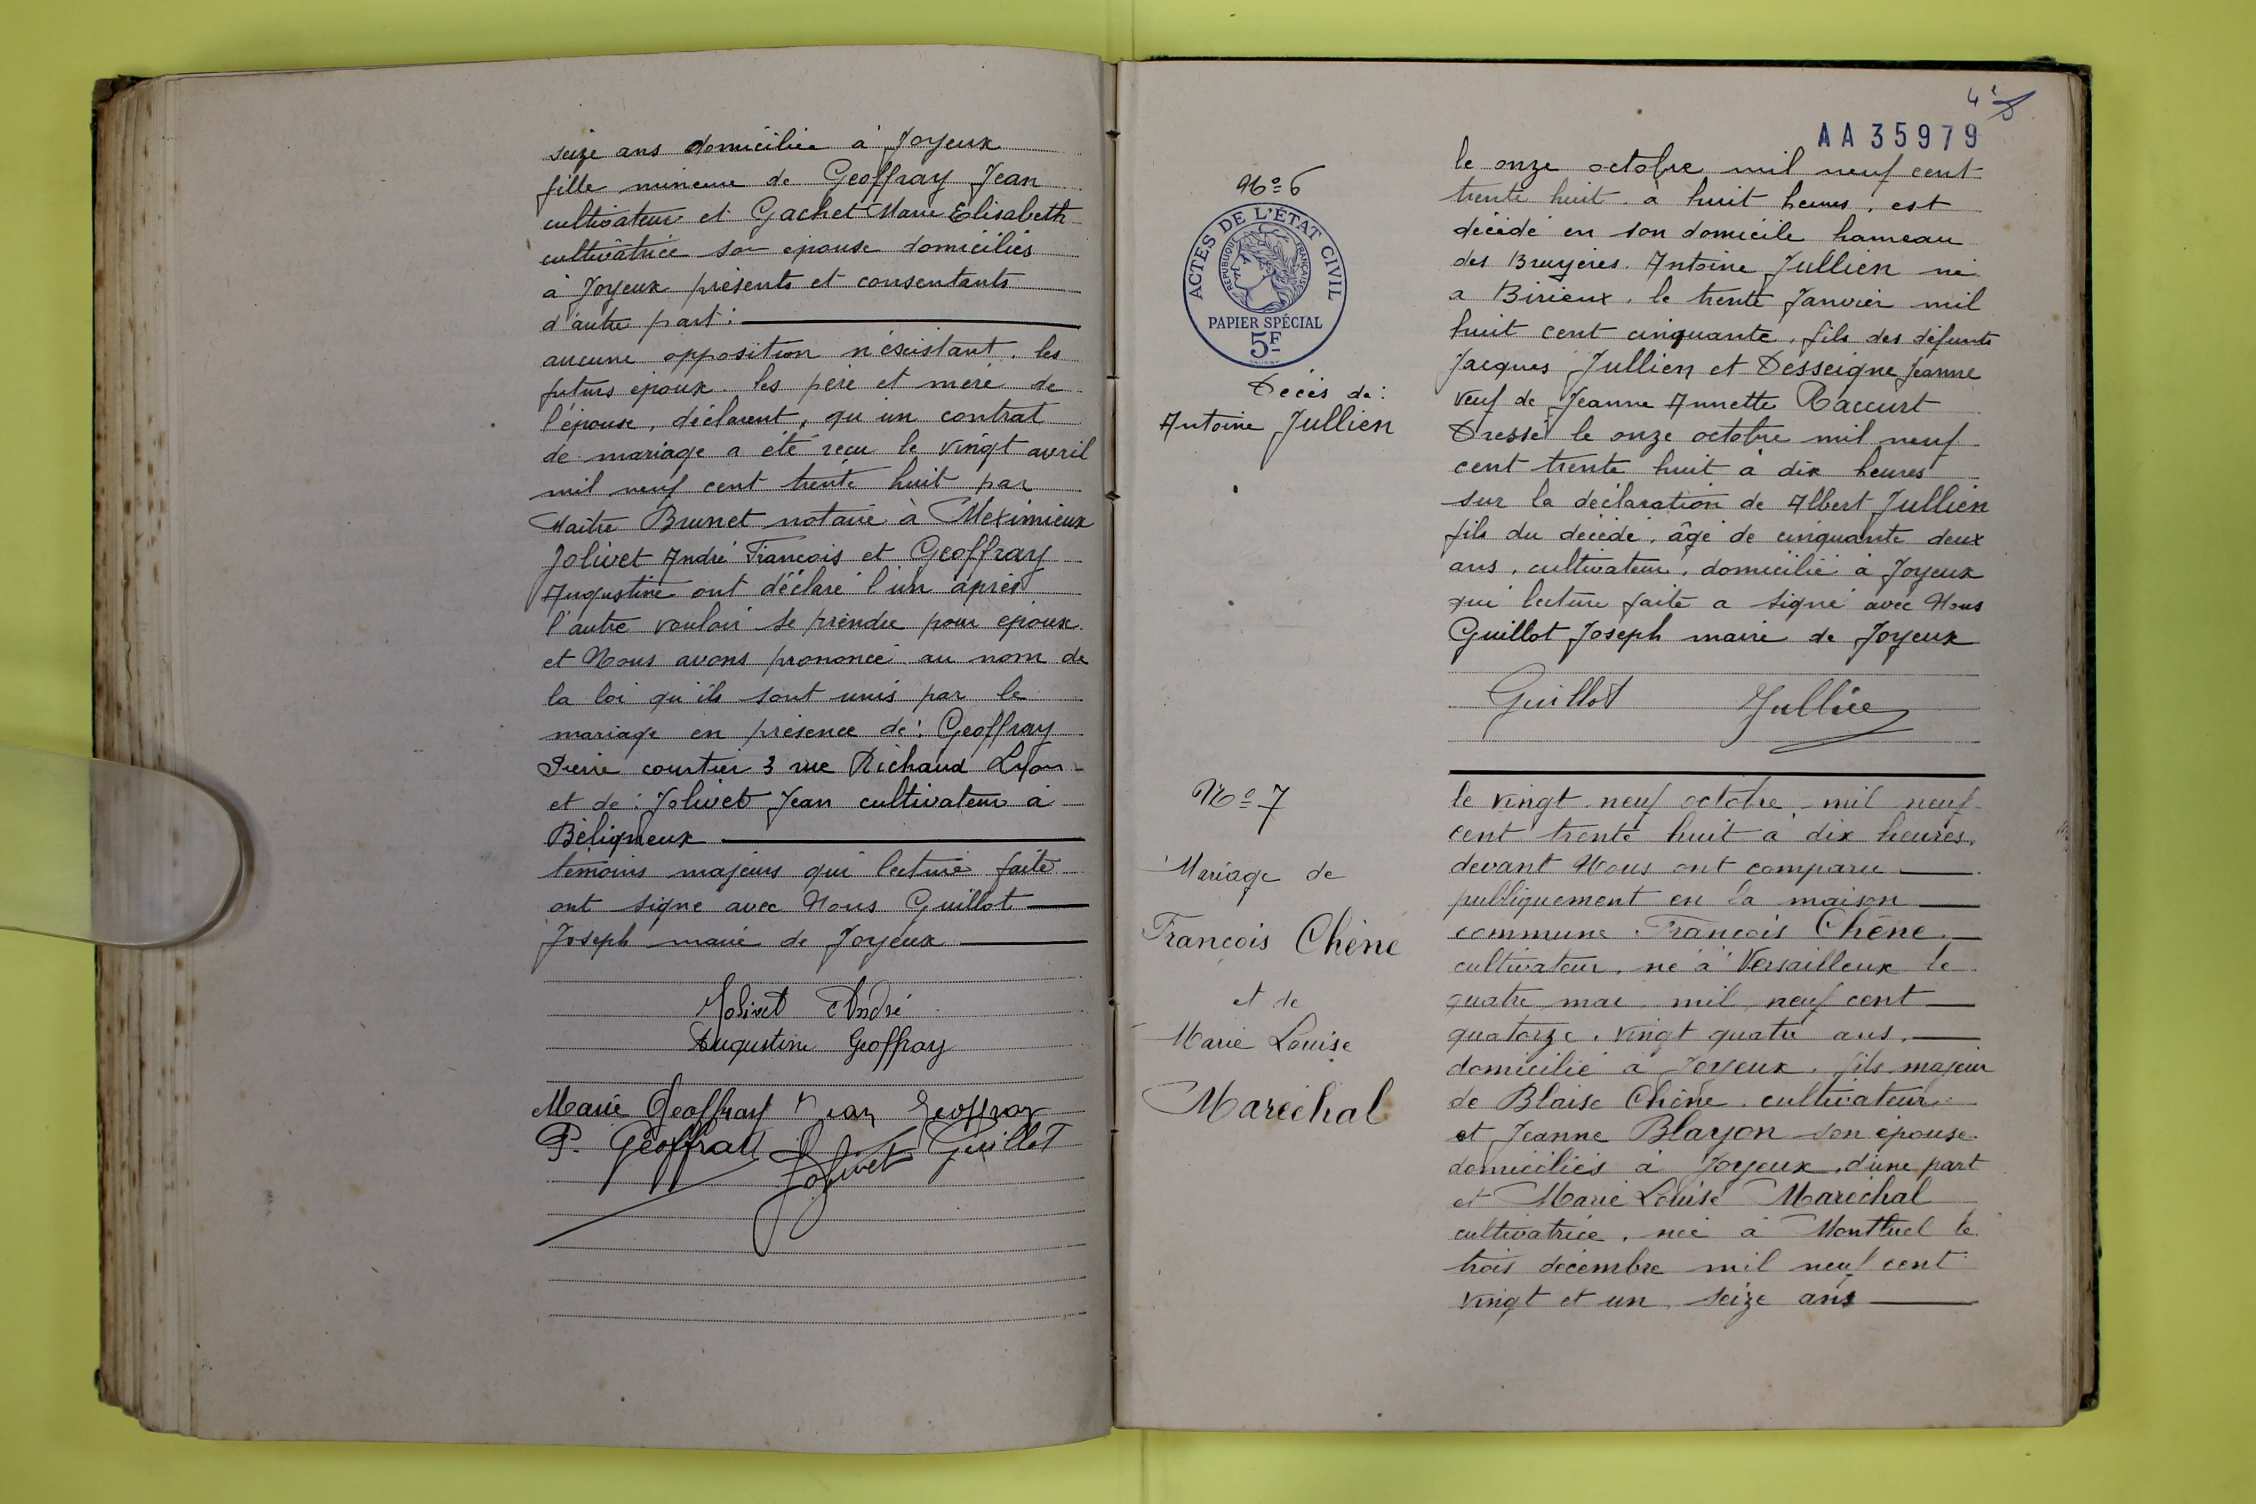 seize ans domiciliée à Joyeux
fille mineure de Geoffray Jean
cultivateur et Gachet Marie Elisabeth
cultivatrice son épouse domiciliés
à Joyeux présents et consentants
d'autre part :
aucune opposition n'éxistant. les
futurs époux. les père et mère de
l'épouse, déclarent, qu'un contrat
de mariage a été reçu le vingt avril
mil neuf cent trente huit par
Maitre Brunet notaire à Meximieux
Jolivet André François et Geoffray
Augustine ont déclaré l'un après
l'autre vouloir se prendre pour époux
et Nous avons prononcé au nom de
la loi qu'ils sont unis par le
mariage en présence de : Geoffray
Pierre courtier 3 rue Richaud Lyon
et de : Jolivet Jean cultivateur à
Béligneux
témoins majeurs qui lecture faite
ont signé avec Nous Guillot
Joseph maire de Joyeux
Jolivet André
Augustine Geoffray
Marie Geoffray Jean Geoffray
P. Geoffray Jolivet Guillot
4e
AA35979
No 6
ACTES DE L'ÉTAT CIVIL
RÉPUBLIQUE FRANÇAISE
PAPIER SPÉCIAL
5F
Décès de :
Antoine Jullien
le onze octobre mil neuf cent
trente huit. à huit heures, est
décédé en son domicile hameau
des Bruyères. Antoine Jullien né
a Birieux, le trente Janvier mil
huit cent cinquante, fils des défunts
Jacques Jullien et Desseigne Jeanne
veuf de Jeanne Annette Raccurt
Dressé le onze octobre mil neuf
cent trente huit à dix heures
sur la déclaration de Albert Jullien
fils du décédé, âgé de cinquante deux
ans, cultivateur, domicilié à Joyeux
qui lecture faite a signé avec Nous
Guillot Joseph maire de Joyeux
Guillot Jullien
No 7
Mariage de
François Chêne
et de
Marie Louise
Maréchal
le vingt neuf octobre mil neuf
cent trente huit à dix heures,
devant Nous ont comparu
publiquement en la maison
commune. François Chêne
cultivateur, né à Versailleux le
quatre mai mil neuf cent
quatorze, vingt quatre ans,
domicilié à Joyeux, fils majeur
de Blaise Chêne cultivateur
et Jeanne Blayon son épouse
domiciliés à Joyeux, d'une part
et Marie Louise Maréchal
cultivatrice, née à Montluel le
trois décembre mil neuf cent
vingt et un, seize ans